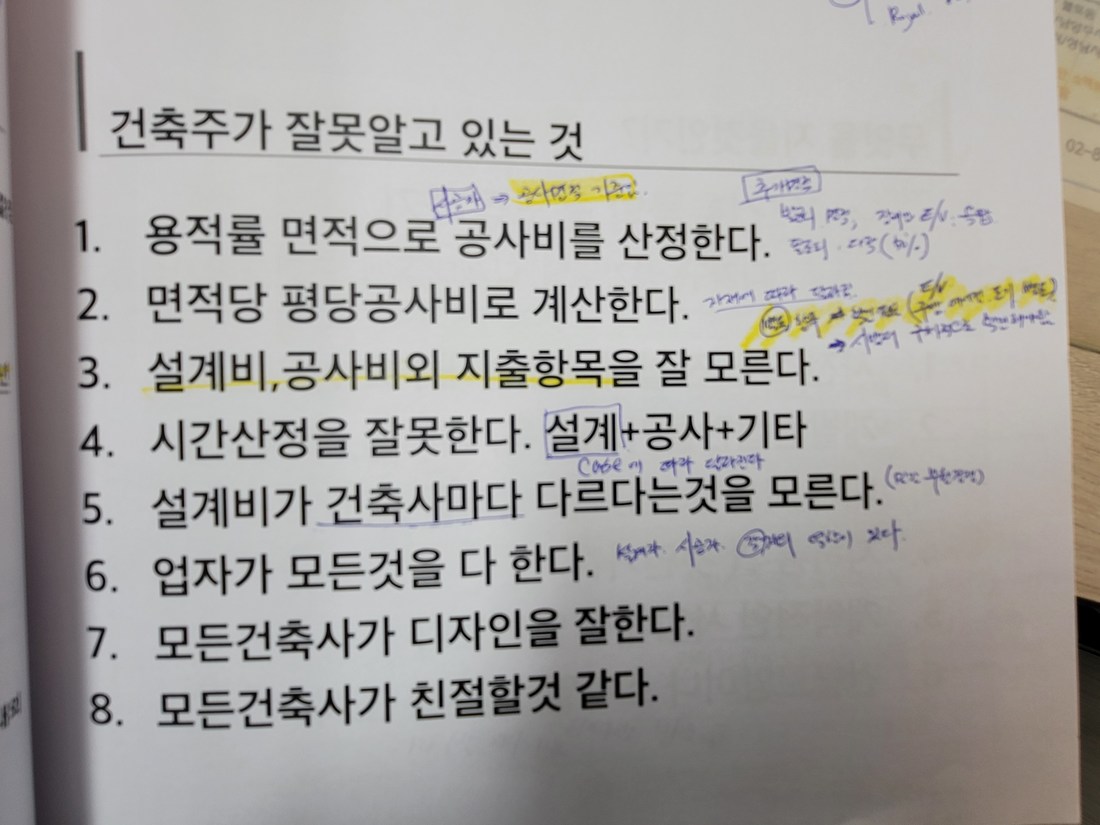 Royal
02-8
건축주가 잘못알고 있는 것
시공사 → 공사면적 기준임.
추가면적
1. 용적률 면적으로 공사비를 산정한다.
발코니 면적, E/V.
2. 면적당 평당공사비로 계산한다.
자재에 따라 달라짐
E/V
3. 설계비,공사비외 지출항목을 잘 모른다.
4. 시간산정을 잘못한다. 설계+공사+기타
Case에 따라 달라진다
5. 설계비가 건축사마다 다르다는것을 모른다.
6. 업자가 모든것을 다 한다.
설계자. 시공자. 역할이 있다.
7. 모든건축사가 디자인을 잘한다.
8. 모든건축사가 친절할것 같다.